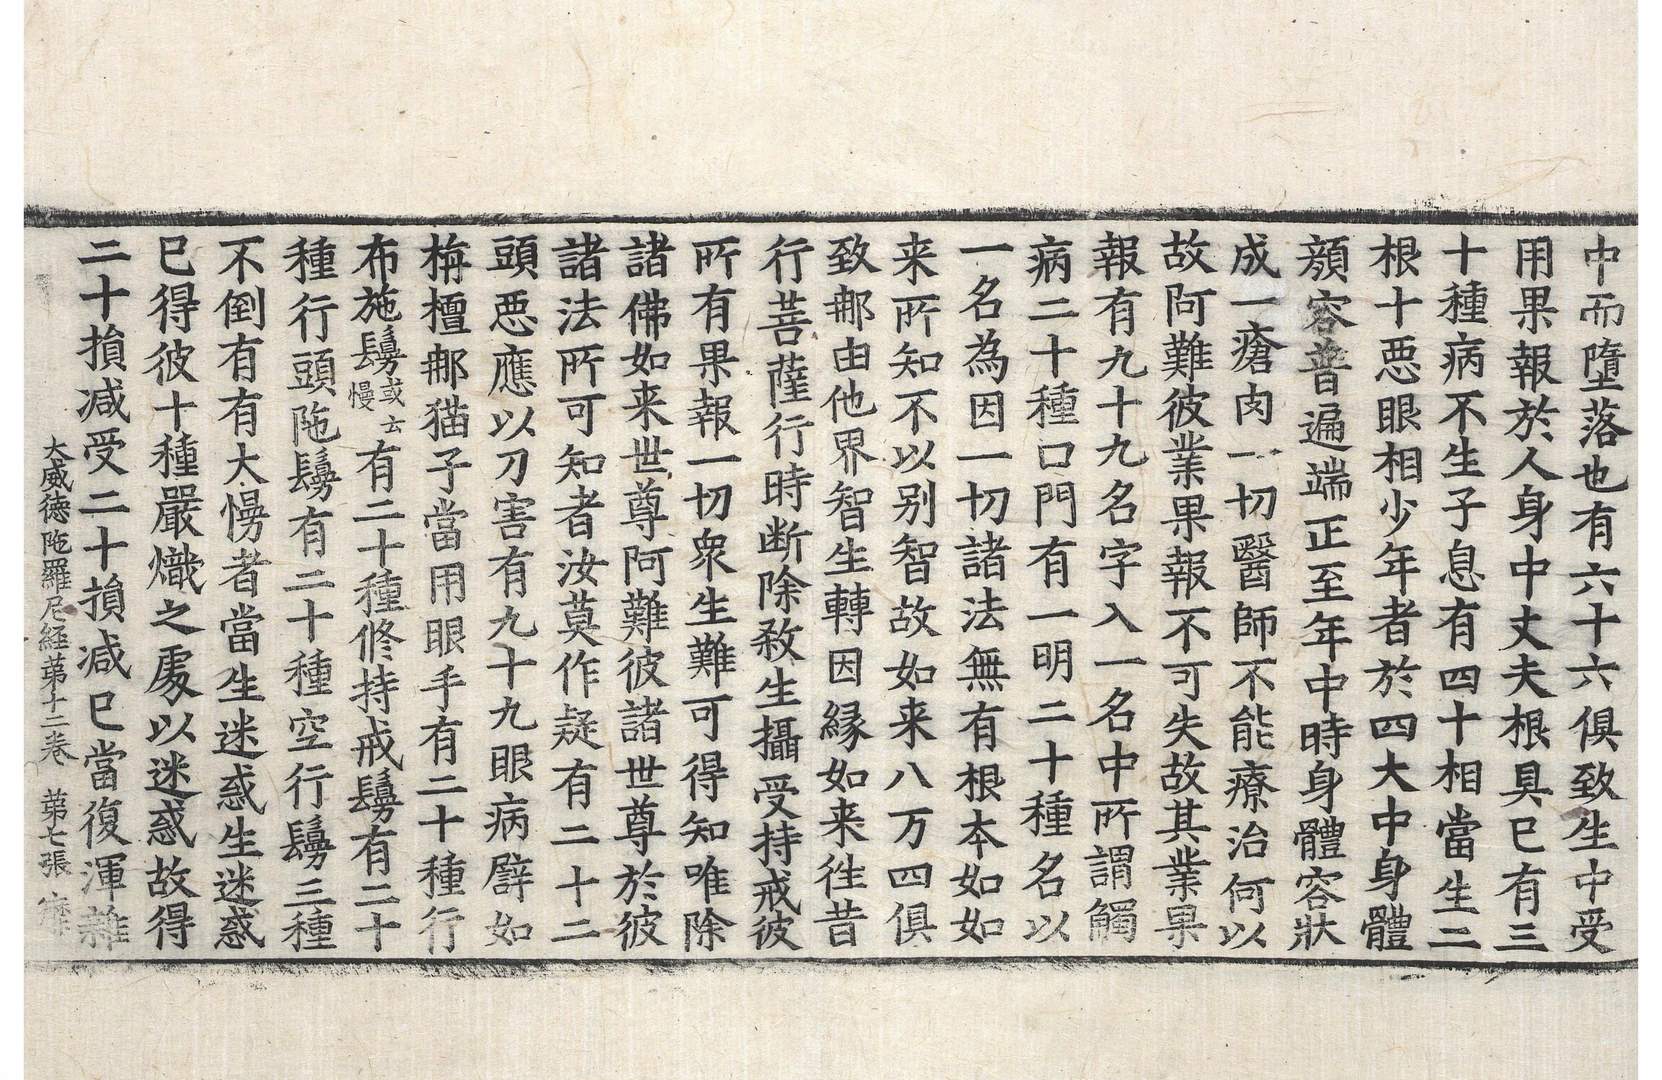 中而墮落也有六十六俱致生中受
用果報於人身中丈夫根具已有三
十種病不生子息有四十相當生二
根十惡眼相少年者於四大中身體
顏容普遍端正至年中時身體容狀
成一瘡肉一切醫師不能療治何以
故阿難彼業果報不可失故其業果
報有九十九名字入一名中所謂觸
病二十種口門有一明二十種名以
一名為因一切諸法無有根本如如
来所知不以別智故如来八万四俱
致㖠由他界智生轉因緣如来徃昔
行菩薩行時断除殺生攝受持戒彼
所有果報一切衆生難可得知唯除
諸佛如来世尊阿難彼諸世尊於彼
諸法所可知者汝莫作疑有二十二
頭惡應以刀害有九十九眼病㿺如
栴檀㖠猫子當用眼手有二十種行
布施鬘或云慢有二十種修持戒鬘有二十
種行頭陁鬘有二十種空行鬘三種
不倒有有大慢者當生迷惑生迷惑
已得彼十種嚴熾之處以迷惑故得
二十損减受二十損减已當復渾雜
大威德陁羅尼経苐十二卷　苐七張